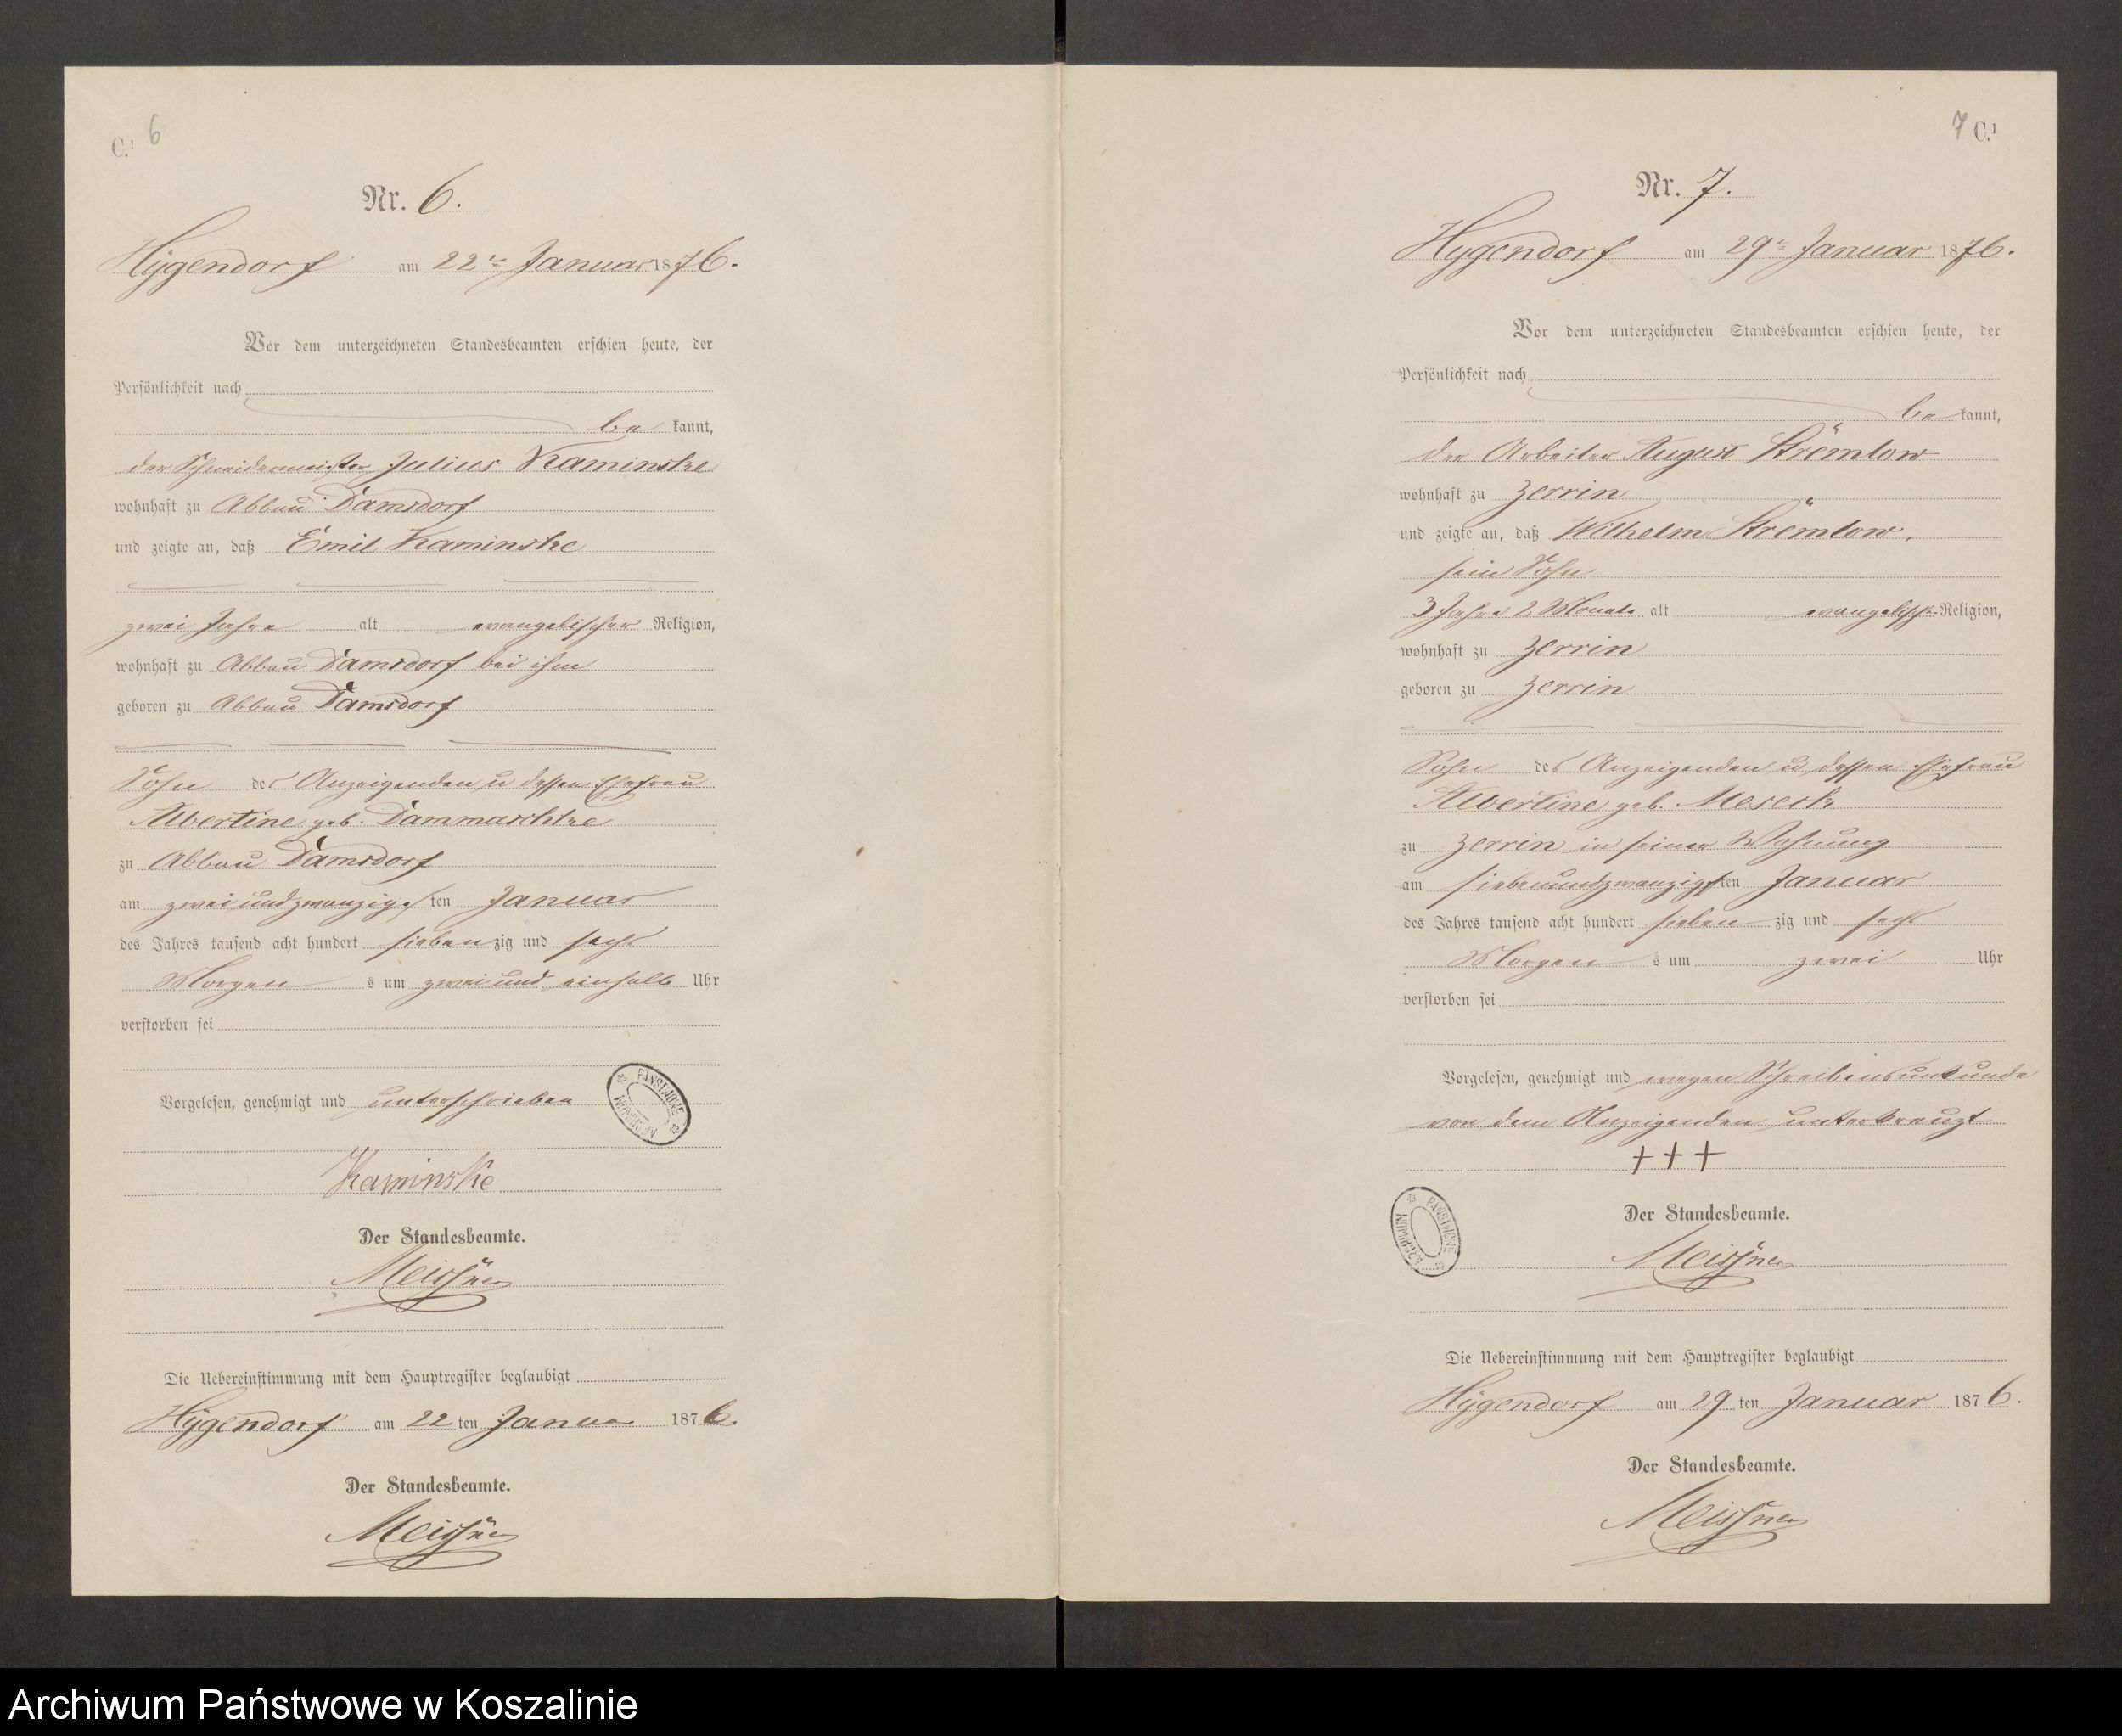 C.¹ 6
Nr. 6.
Hygendorf am 22ten Januar 1876.
Vor dem unterzeichneten Standesbeamten erschien heute, der
Persönlichkeit nach
be kannt,
der Schneidermeister Julius Kaminske
wohnhaft zu Abbau Damsdorf
und zeigte an, daß Emil Kaminske
zwei Jahre alt evangelischer Religion,
wohnhaft zu Abbau Damsdorf bei ihm
geboren zu Abbau Damsdorf
Sohn des Anzeigenden u dessen Ehefrau
Albertine geb. Dammaschke
zu Abbau Damsdorf
am zweiundzwanzigsten Januar
des Jahres tausend acht hundert sieben zig und sechs
Morgen s um zwei und einhalb Uhr
verstorben sei
Vorgelesen, genehmigt und unterschrieben
Kaminske
Der Standesbeamte.
Meissner
Die Uebereinstimmung mit dem Hauptregister beglaubigt
Hygendorf am 22 ten Januar 1876.
Der Standesbeamte.
Meissner
7 C.¹
Nr. 7.
Hygendorf am 29ten Januar 1876.
Vor dem unterzeichneten Standesbeamten erschien heute, der
Persönlichkeit nach
be kannt,
der Arbeiter August Krёmlow
wohnhaft zu Zerrin
und zeigte an, daß Wilhelm Krёmlow,
sein Sohn
3 Jahre 2 Monate alt evangelisch Religion,
wohnhaft zu Zerrin
geboren zu Zerrin
Sohn des Anzeigenden u dessen Ehefrau
Albertine geb. Meseck
zu Zerrin in seiner Wohnung
am siebenundzwanzigsten Januar
des Jahres tausend acht hundert sieben zig und sechs
Morgen s um zwei Uhr
verstorben sei
Vorgelesen, genehmigt und wegen Schreibensunkunde
von dem Anzeigenden unterkreuzt
+++
Der Standesbeamte.
Meissner
Die Uebereinstimmung mit dem Hauptregister beglaubigt
Hygendorf am 29 ten Januar 1876.
Der Standesbeamte.
Meissner
Archiwum Państwowe w Koszalinie